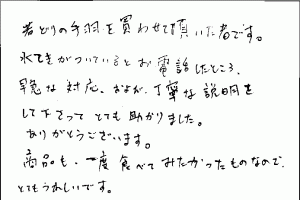 若どりの手羽を買わせて頂いた者です。
水てきがついているとお電話したところ、
早急な対応、および、丁寧な説明を
して下さって とても助かりました。
ありがとうございます。
商品も、一度食べてみたかったものなので、
とてもうれしいです。